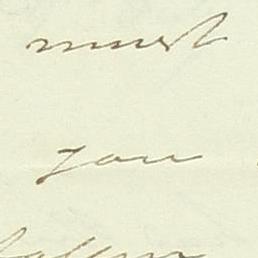 must
you